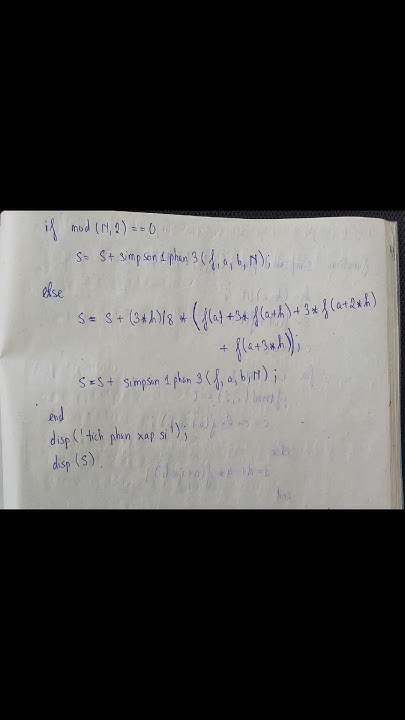 if mod (N,2) == 0
S = S + simpson 1 phan 3 (f, a, b, N);
else
S = S + (3*h)/8 * (f(a) + 3* f(a+h) + 3* f(a+2*h)
+ f(a+3*h));
S = S + simpson 1 phan 3 (f, a, b, N);
end
disp ('tich phan xap si');
disp (S).